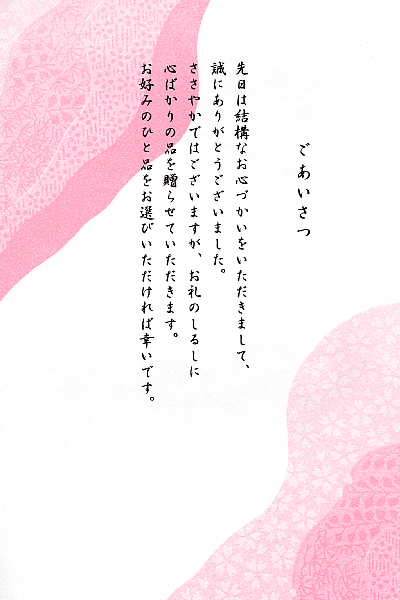 ごあいさつ
先日は結構なお心づかいをいただきまして、
誠にありがとうございました。
ささやかではございますが、お礼のしるしに
心ばかりの品を贈らせていただきます。
お好みのひと品をお選びいただければ幸いです。